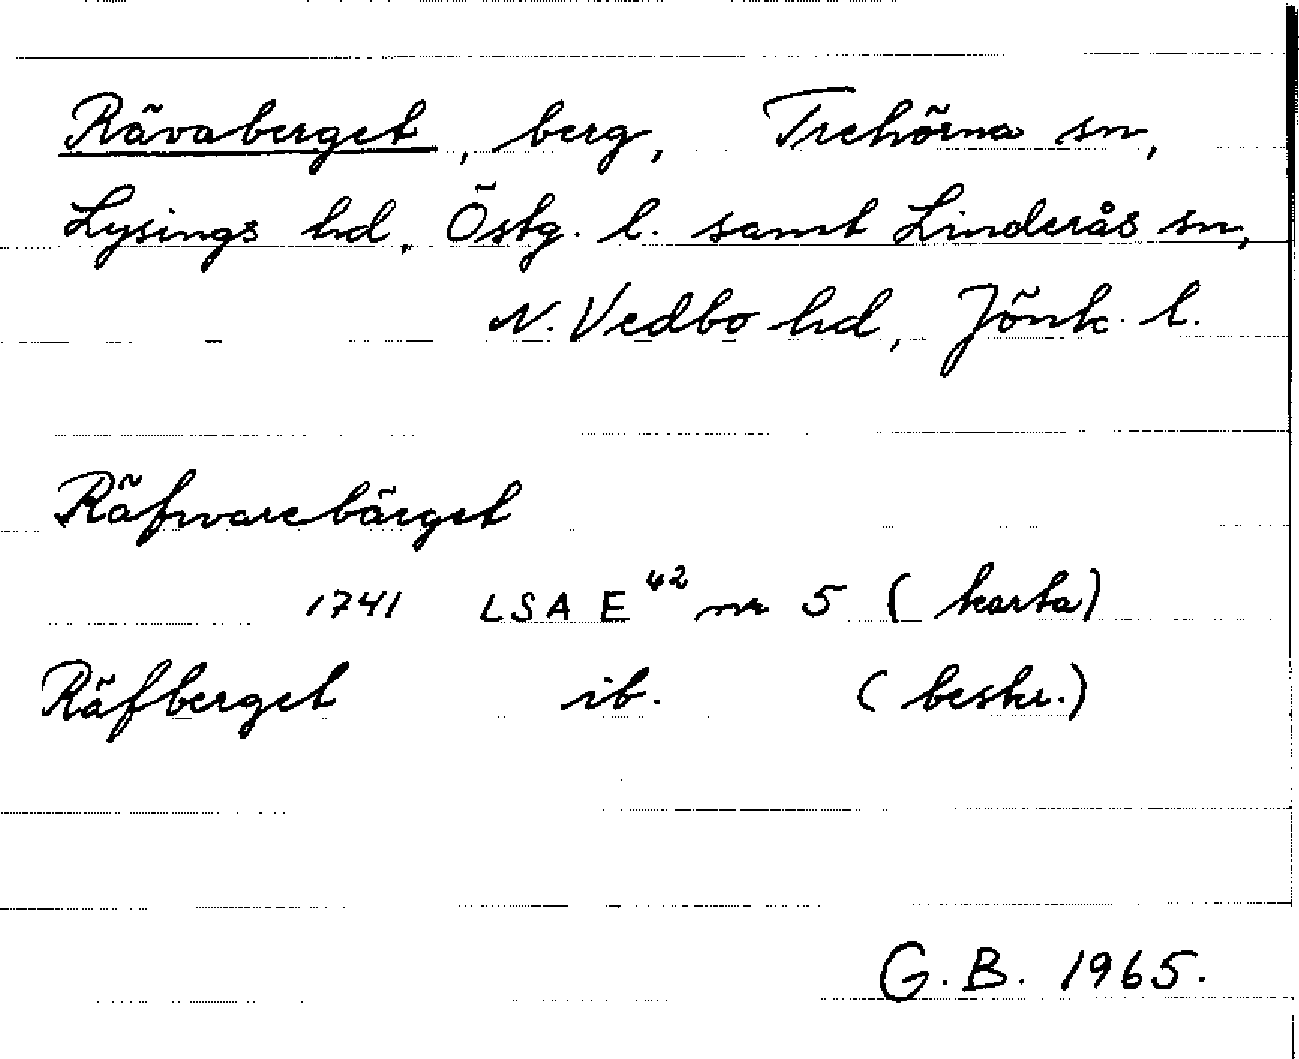 Rävaberget, berg, Trehörna sn,
Lysings hd, Östg. l. samt Linderås sn,
N. Vedbo hd, Jönk. l.
Räfwarebärget
1741 LSA E⁴² nr 5 (karta)
Räfberget ib. (beskr.)
G.B. 1965.